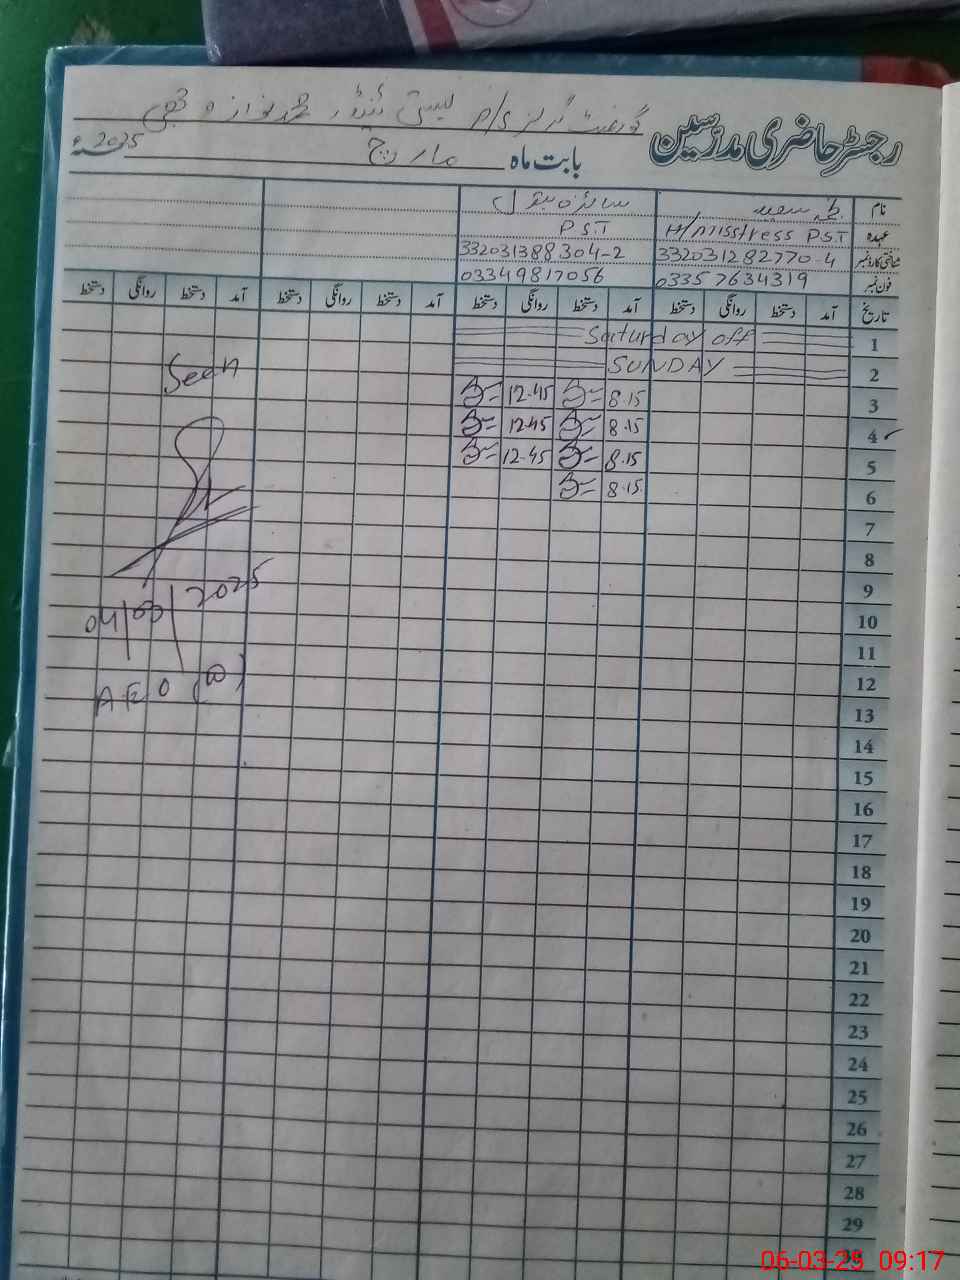 رجسٹر حاضری مدرسین گورنمنٹ گرلز P/S بستی محمد نواز
بابت ماہ مارچ 2025ء
نام سعید سائرہ بتول
عہدہ H/misstress P.S.T P.S.T
شناختی کارڈ نمبر 332031282770-4 332031388304-2
فون نمبر 03357634319 03349817056
تاریخ آمد دستخط روانگی دستخط آمد دستخط روانگی دستخط آمد دستخط روانگی دستخط آمد دستخط روانگی دستخط
1 Saturday off
2 SUNDAY
3 8.15 12.45
4 8.15 12.45
5 8.15 12.45
6 8.15
7
8
9
10
11
12
13
14
15
16
17
18
19
20
21
22
23
24
25
26
27
28
29
30
Seen
04/03/2025
AEO (W)
06-03-25 09:17